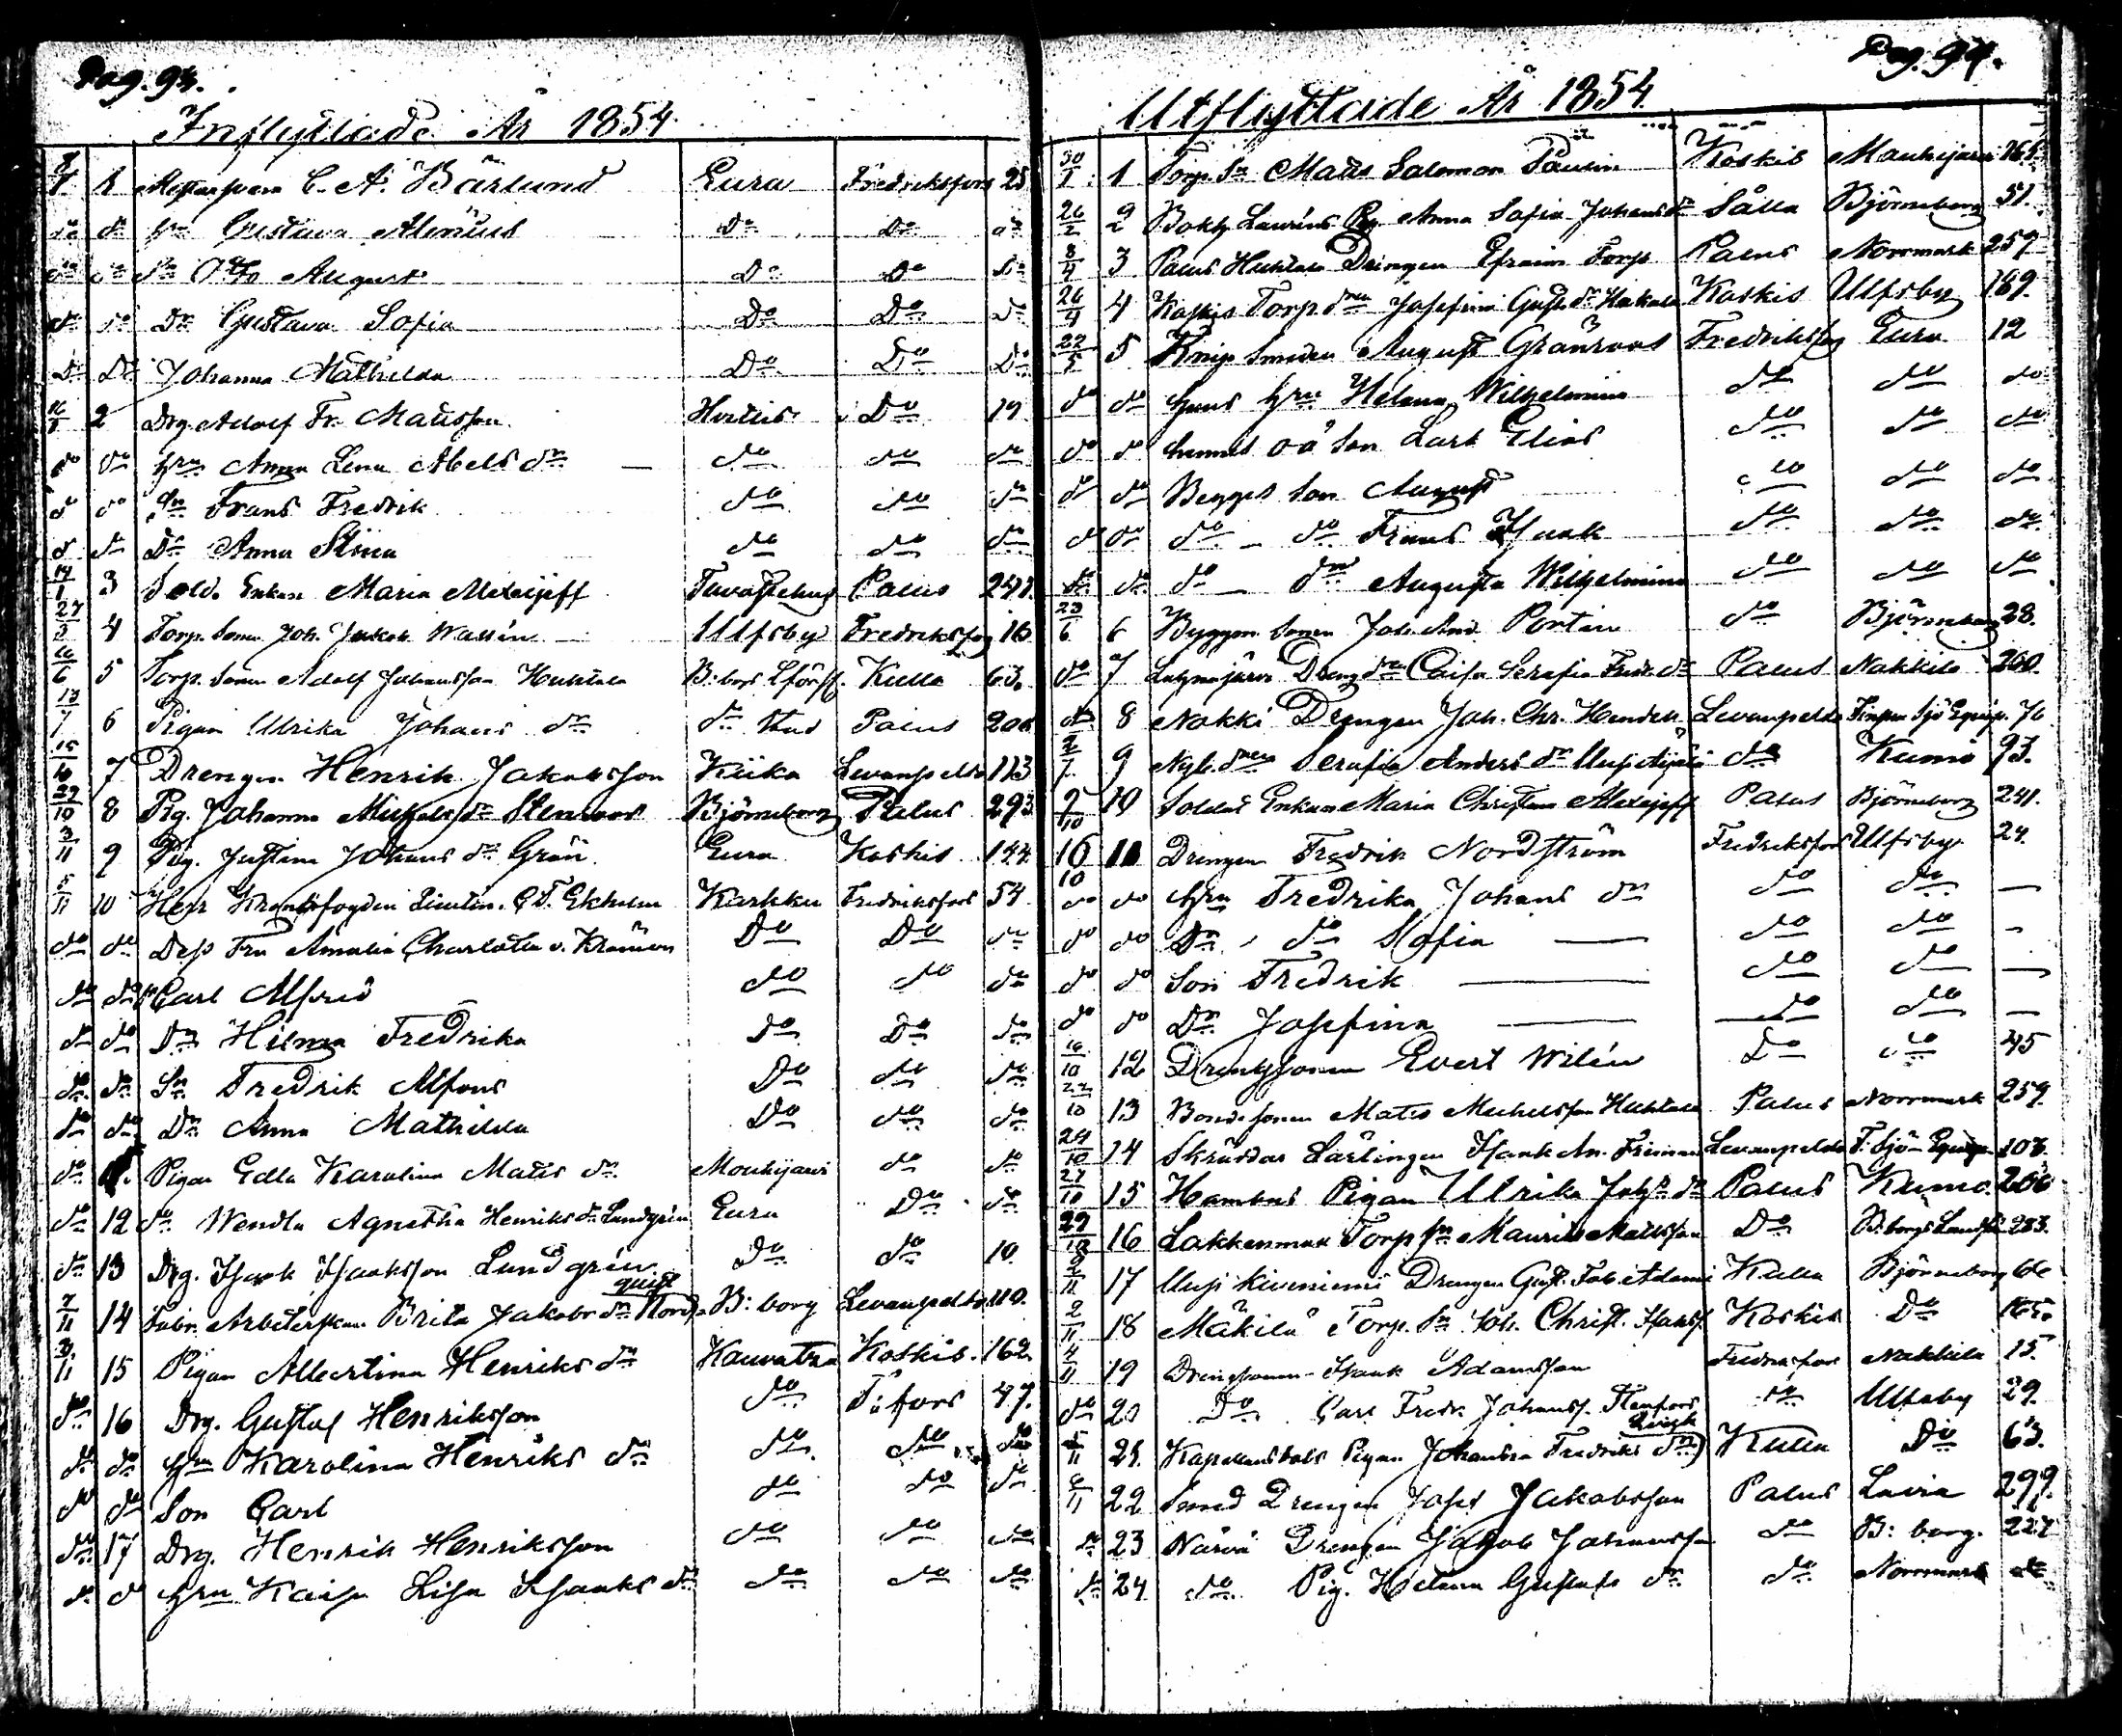 Pag. 94.
Inflyttade År 1854.
1 C. A. Bärlund Eura Fredriksfors 25
do do hru Gustava Alenius Do Do do
do do Sn Otto August Do Do Do
do do Dr Gustava Sofia Do Do Do
Do Do Johanna Mathilda Do Do Do
2 Drg. Adolf Fr. Matsson Do 19
do do hru Anna Lena Abels dr do do do
do do Sn Frans Fredrik do do do
do do Dr Anna Stina do do do
14/1 3 Sold. Enkan Maria Alexejeff Tavastehus Palus 241.
27/3 4 Torp. Sonen Joh. Jakob Wallin Ulfsby Fredriksfors 16
16/6 5 Torp. Sonen Adolf Johansson Huhtala B:borgs Lförs. Kulla 63.
13/7 6 Pigan Ulrika Johans dr do stad Palus 206
15/10 7 Drengen Henrik Jakobsson Kiika Levanpelto 113
29/10 8 Pig. Johanna Mickels dr Stenroos Björneborg Palus 293
3/11 9 Pig. Justina Johans dr Grön Eura Koskis 144.
5/11 10 Herr Kronofogden Lieuten. C. F. Ekholm Karkku Fredriksfors 54
do do Dess Fru Amalia Charlotta v. Kræmer Do Do do
do do Sn Carl Alfred do do do
do do Dr Hilma Fredrika do Do do
do do Sn Fredrik Alfons Do do do
do do Dr Anna Mathilda Do do do
do 11. Pigan Edla Karolina Mats dr Mouhijärvi do do
do 12 do Wendla Agnetha Henriks dr Lundgrén Eura Do do
do 13 Drg. Isaak Isaksson Lundgrén Do do 10.
7/11 14 Fabr. Arbeterskan Brita Jakobs dr Nordquist B:borg Levanpelto 110.
15 Pigan Albertina Henriks dr Kauvatsa Koskis. 162.
do 16 Drg. Gustaf Henriksson do F:fors 47.
do do hru Karolina Henriks dr do do do
do do Son Carl do do do
do 17 Drg. Henrik Henriksson do do do
do do hru Kaisa Lisa Isaaks dr do do do
Pag. 94.
Utflyttade År 1854.
30/1 1 Torp. Sn Mats Salomon Paulin Koskis Mouhijärvi 165.
26/2 2 Lauréns Pig. Anna Sofia Johans dr Sålla Björneborg 51.
3/4 3 Palus Huhtala Drängen Efraim Torp Palus Norrmark 257
26/4 4 Koskis Torp. dren Josefina Gust. dr Hakala Koskis Ulfsby 169.
22/5 5 Knip Smeden August Grönroos Fredriksfors Eura 12
do do hans hru Helena Wilhelmina do do do
do do hennes oä Son Karl Elias do do do
do do Begges Son August do do do
do do do do Frans Isaak do do do
do do do dren Augusta Wilhelmina do do do
23/6 6 Byggm. Sonen Joh. And. Portin do Björneborg 28.
do 7 Dreng dren Caisa Serafia Fredr. dr Palus Nakkila 260.
do 8 Nokki Drengen Joh. Chr. Hendek Levanpelto Finska Sjö Equip. 76
2/7 9 Nyb. dren Serafia Anders dr do Kumo 93.
9/10 10 Soldat Enkan Maria Christina Alexejeff Palus Björneborg 241.
16/10 11 Drengen Fredrik Nordström Fredriksfors Ulfsby 24.
do do hru Fredrika Johans dr do do —
do do Dr do Sofia — do do —
do do Son Fredrik — do do —
do do Dr Josefina — do do —
16/10 12 Drengsonen Evert Wilén Do do 45
22/10 13 Bondesonen Mats Michelsson Huhtala Palus Norrmark 257.
24/10 14 Skräddar Lärlingen Isaak An. Friman Levanpelto F. Sjö Equip. 108.
27/10 15 Hambus Pigan Ulrika Johs dr Palus Kumo. 206
29/10 16 Lakkenmaa Torp Sn Maurits Matsson Do B:borgs Landsfö. 283.
2/11 17 Kiviniemi Drengen Gust. Fab. Adami Kulla Björneborg 66
2/11 18 Mäkilä Torp. Sn Joh. Christ. Isakss. Koskis Do 165.
4/11 19 Drengsonen Isaak Adamsson Fredriksfors Nakkila 15.
do 20 Do Carl Fredr. Johanss. Stenfors do Ulfsby 29.
5/11 21. Kapellansbols Pigan Johanna Fredriks dr Qvick Kulla Do 63.
6/11 22 Smed Drengen Josef Jakobsson Palus Lavia 299.
do 23 Närvä Drengen Jakob Johansson do B:borg. 227
do 24 do Pig. Helena Gustafs dr do Norrmark do